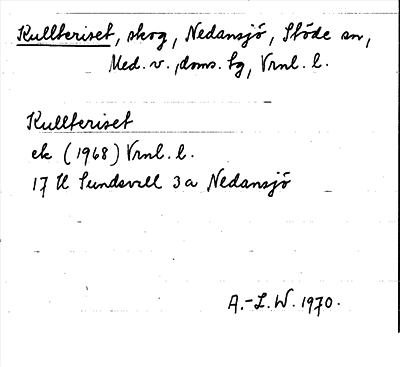 Kullteriset, skog, Nedansjö, Stöde sn,
Med. v. doms. tg, Vrnl. l.
Kullteriset
ek (1968) Vrnl. l.
17 H Sundsvall 3 a Nedansjö
A.-L. W. 1970.